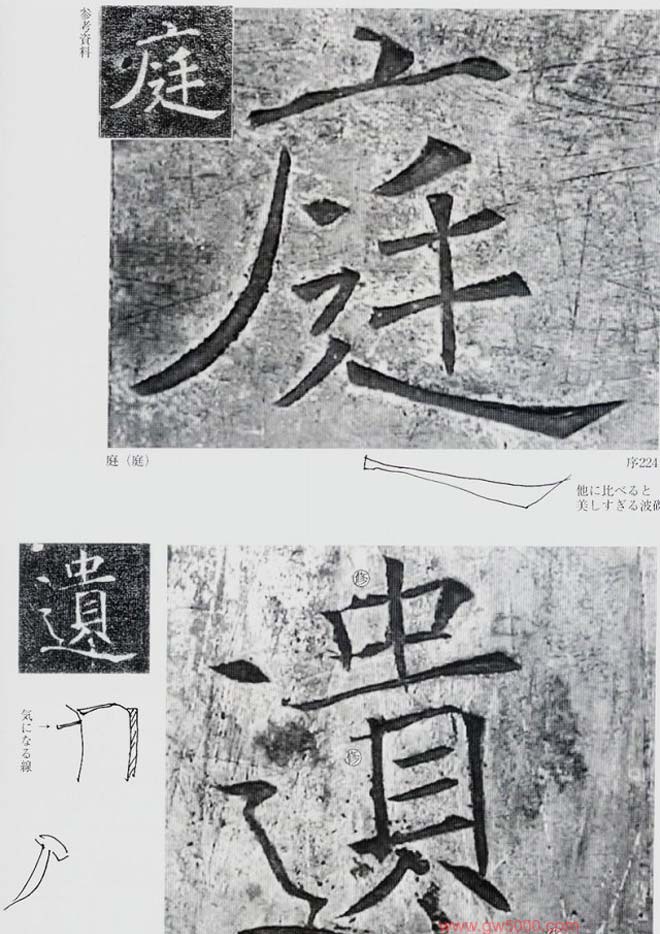 参考資料
庭
庭
庭（庭）
序224
他に比べると
美しすぎる波磔
遺
修
遺
修
気になる線
www.gw5000.com